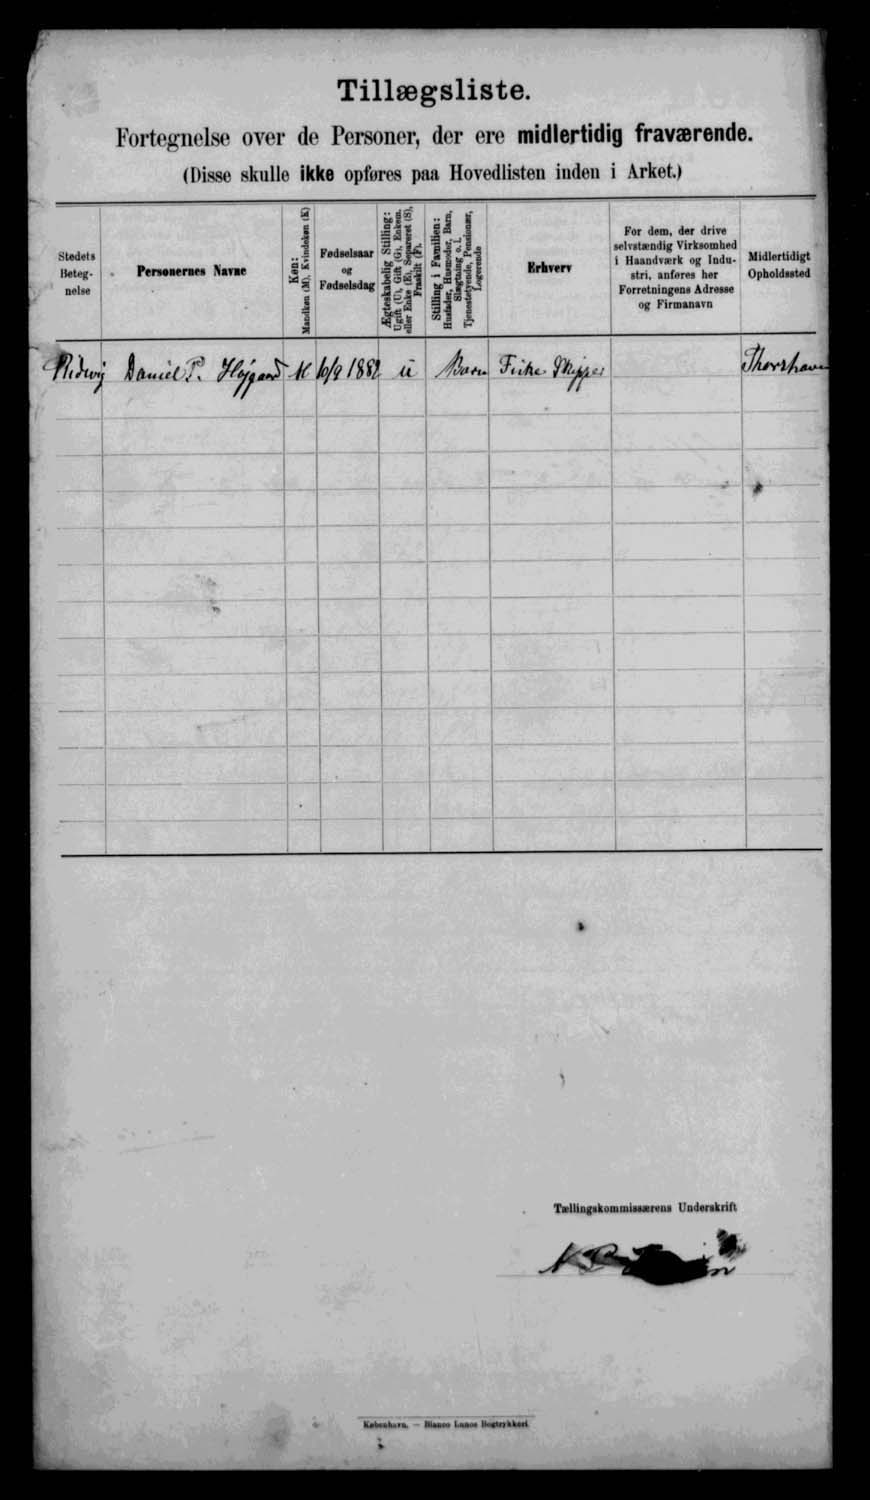 Tillægsliste.
Fortegnelse over de Personer, der ere midlertidig fraværende.
(Disse skulle ikke opføres paa Hovedlisten inden i Arket.)
Stedets
Beteg-
nelse
Personernes Navne
Køn:
Mandkøn (M), Kvindekøn (K)
Fødselsaar
og
Fødselsdag
Ægteskabelig Stilling:
Ugift (U), Gift (G), Enkem.
eller Enke (E), Separeret (S),
Fraskilt (F).
Stilling i Familien:
Husfader, Husmoder, Barn,
Slægtning o. l.
Tjenestetyende, Pensionær,
Logerende
Erhverv
For dem, der drive
selvstændig Virksomhed
i Haandværk og Indu-
stri, anføres her
Forretningens Adresse
og Firmanavn
Midlertidigt
Opholdssted
Ridevig Daniel P. Højgaard M 10/9 1882 U Barn Fiske Skipper Thorshavn
Tællingskommissærens Underskrift
N P
København. — Bianco Lunos Bogtrykkeri